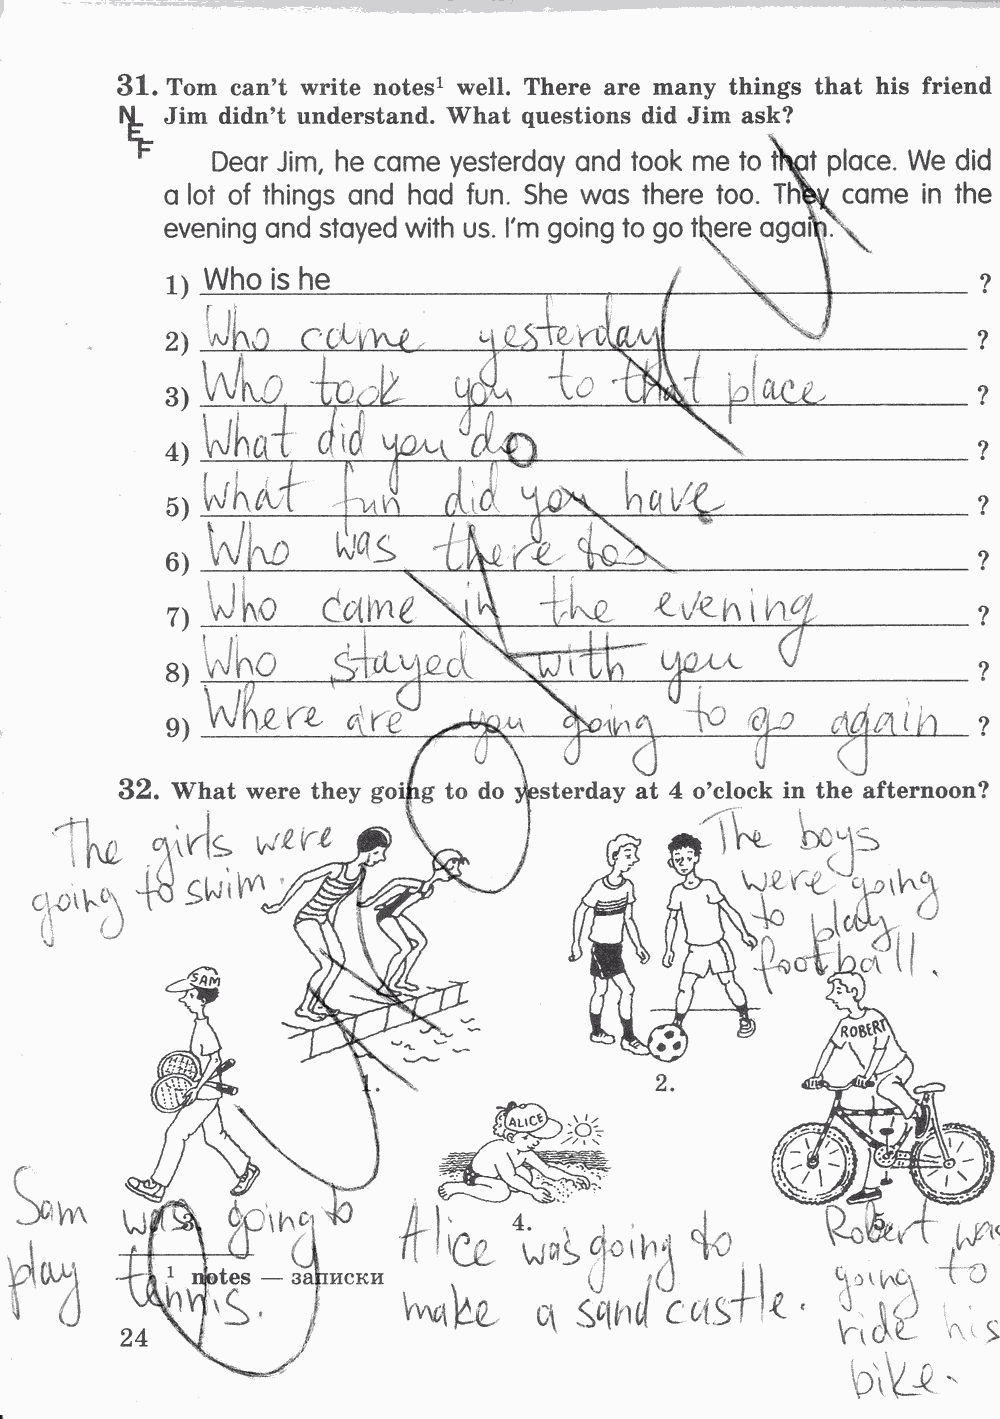 31. Tom can't write notes¹ well. There are many things that his friend
NEF Jim didn't understand. What questions did Jim ask?
Dear Jim, he came yesterday and took me to that place. We did
a lot of things and had fun. She was there too. They came in the
evening and stayed with us. I'm going to go there again.
1) Who is he ?
2) Who came yesterday ?
3) Who took you to that place ?
4) What did you do ?
5) What fun did you have ?
6) Who was there too ?
7) Who came in the evening ?
8) Who stayed with you ?
9) Where are you going to go again ?
32. What were they going to do yesterday at 4 o'clock in the afternoon?
The girls were
going to swim.
The boys
were going
to play
football.
SAM
ROBERT
1.
2.
ALICE
3.
4.
5.
Sam was going to
play tennis.
Alice was going to
make a sand castle.
Robert was
going to
ride his
bike.
¹ notes — записки
24